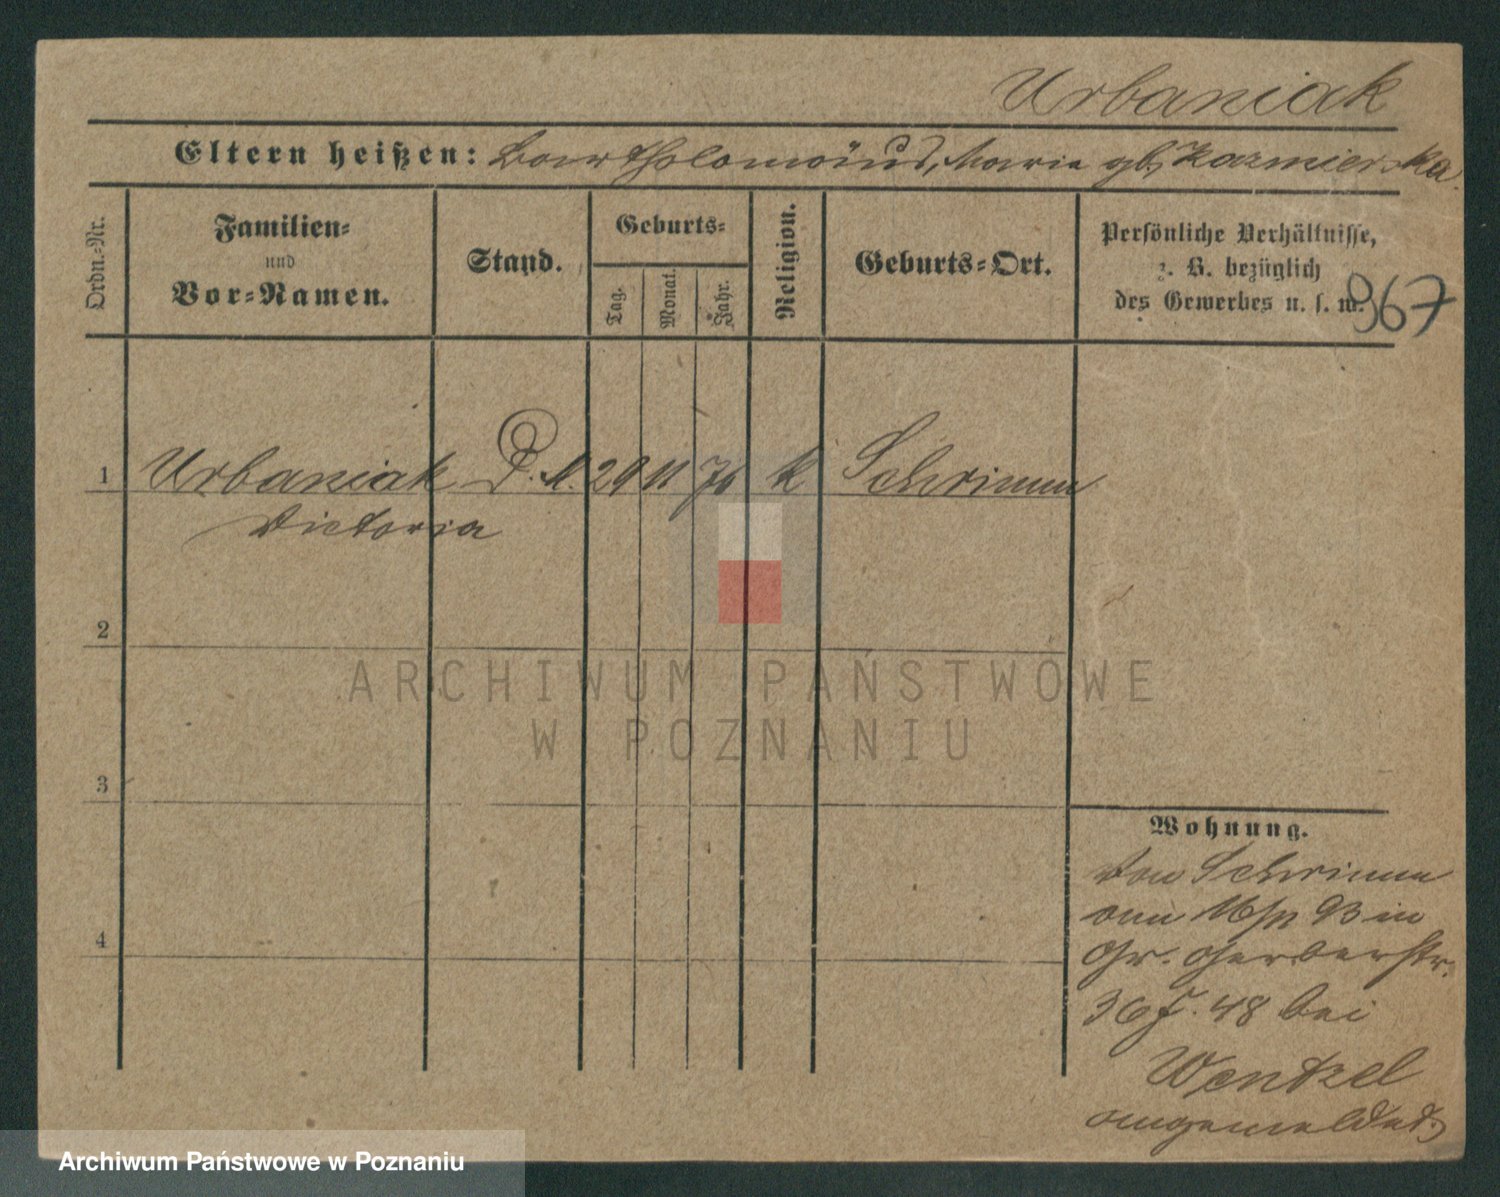 Urbaniak
Eltern heißen: Bartholomäus, Maria gb. Kazmierska.
Ordn.-Nr.
Familien-
und
Vor-Namen.
Stand.
Geburts-
Tag.
Monat.
Jahr.
Religion.
Geburts-Ort.
Persönliche Verhältnisse,
z. B. bezüglich
des Gewerbes u. s. w.
967
1 Urbaniak D. M. 29 11 70 k Schrimm
Victoria
2
3
4
ARCHIWUM PAŃSTWOWE
W POZNANIU
Wohnung.
Von Schrimm
am 16/11 93 in
Gr. Gerberstr.
36 f. 48 bei
Wentzel
angemeldet
Archiwum Państwowe w Poznaniu